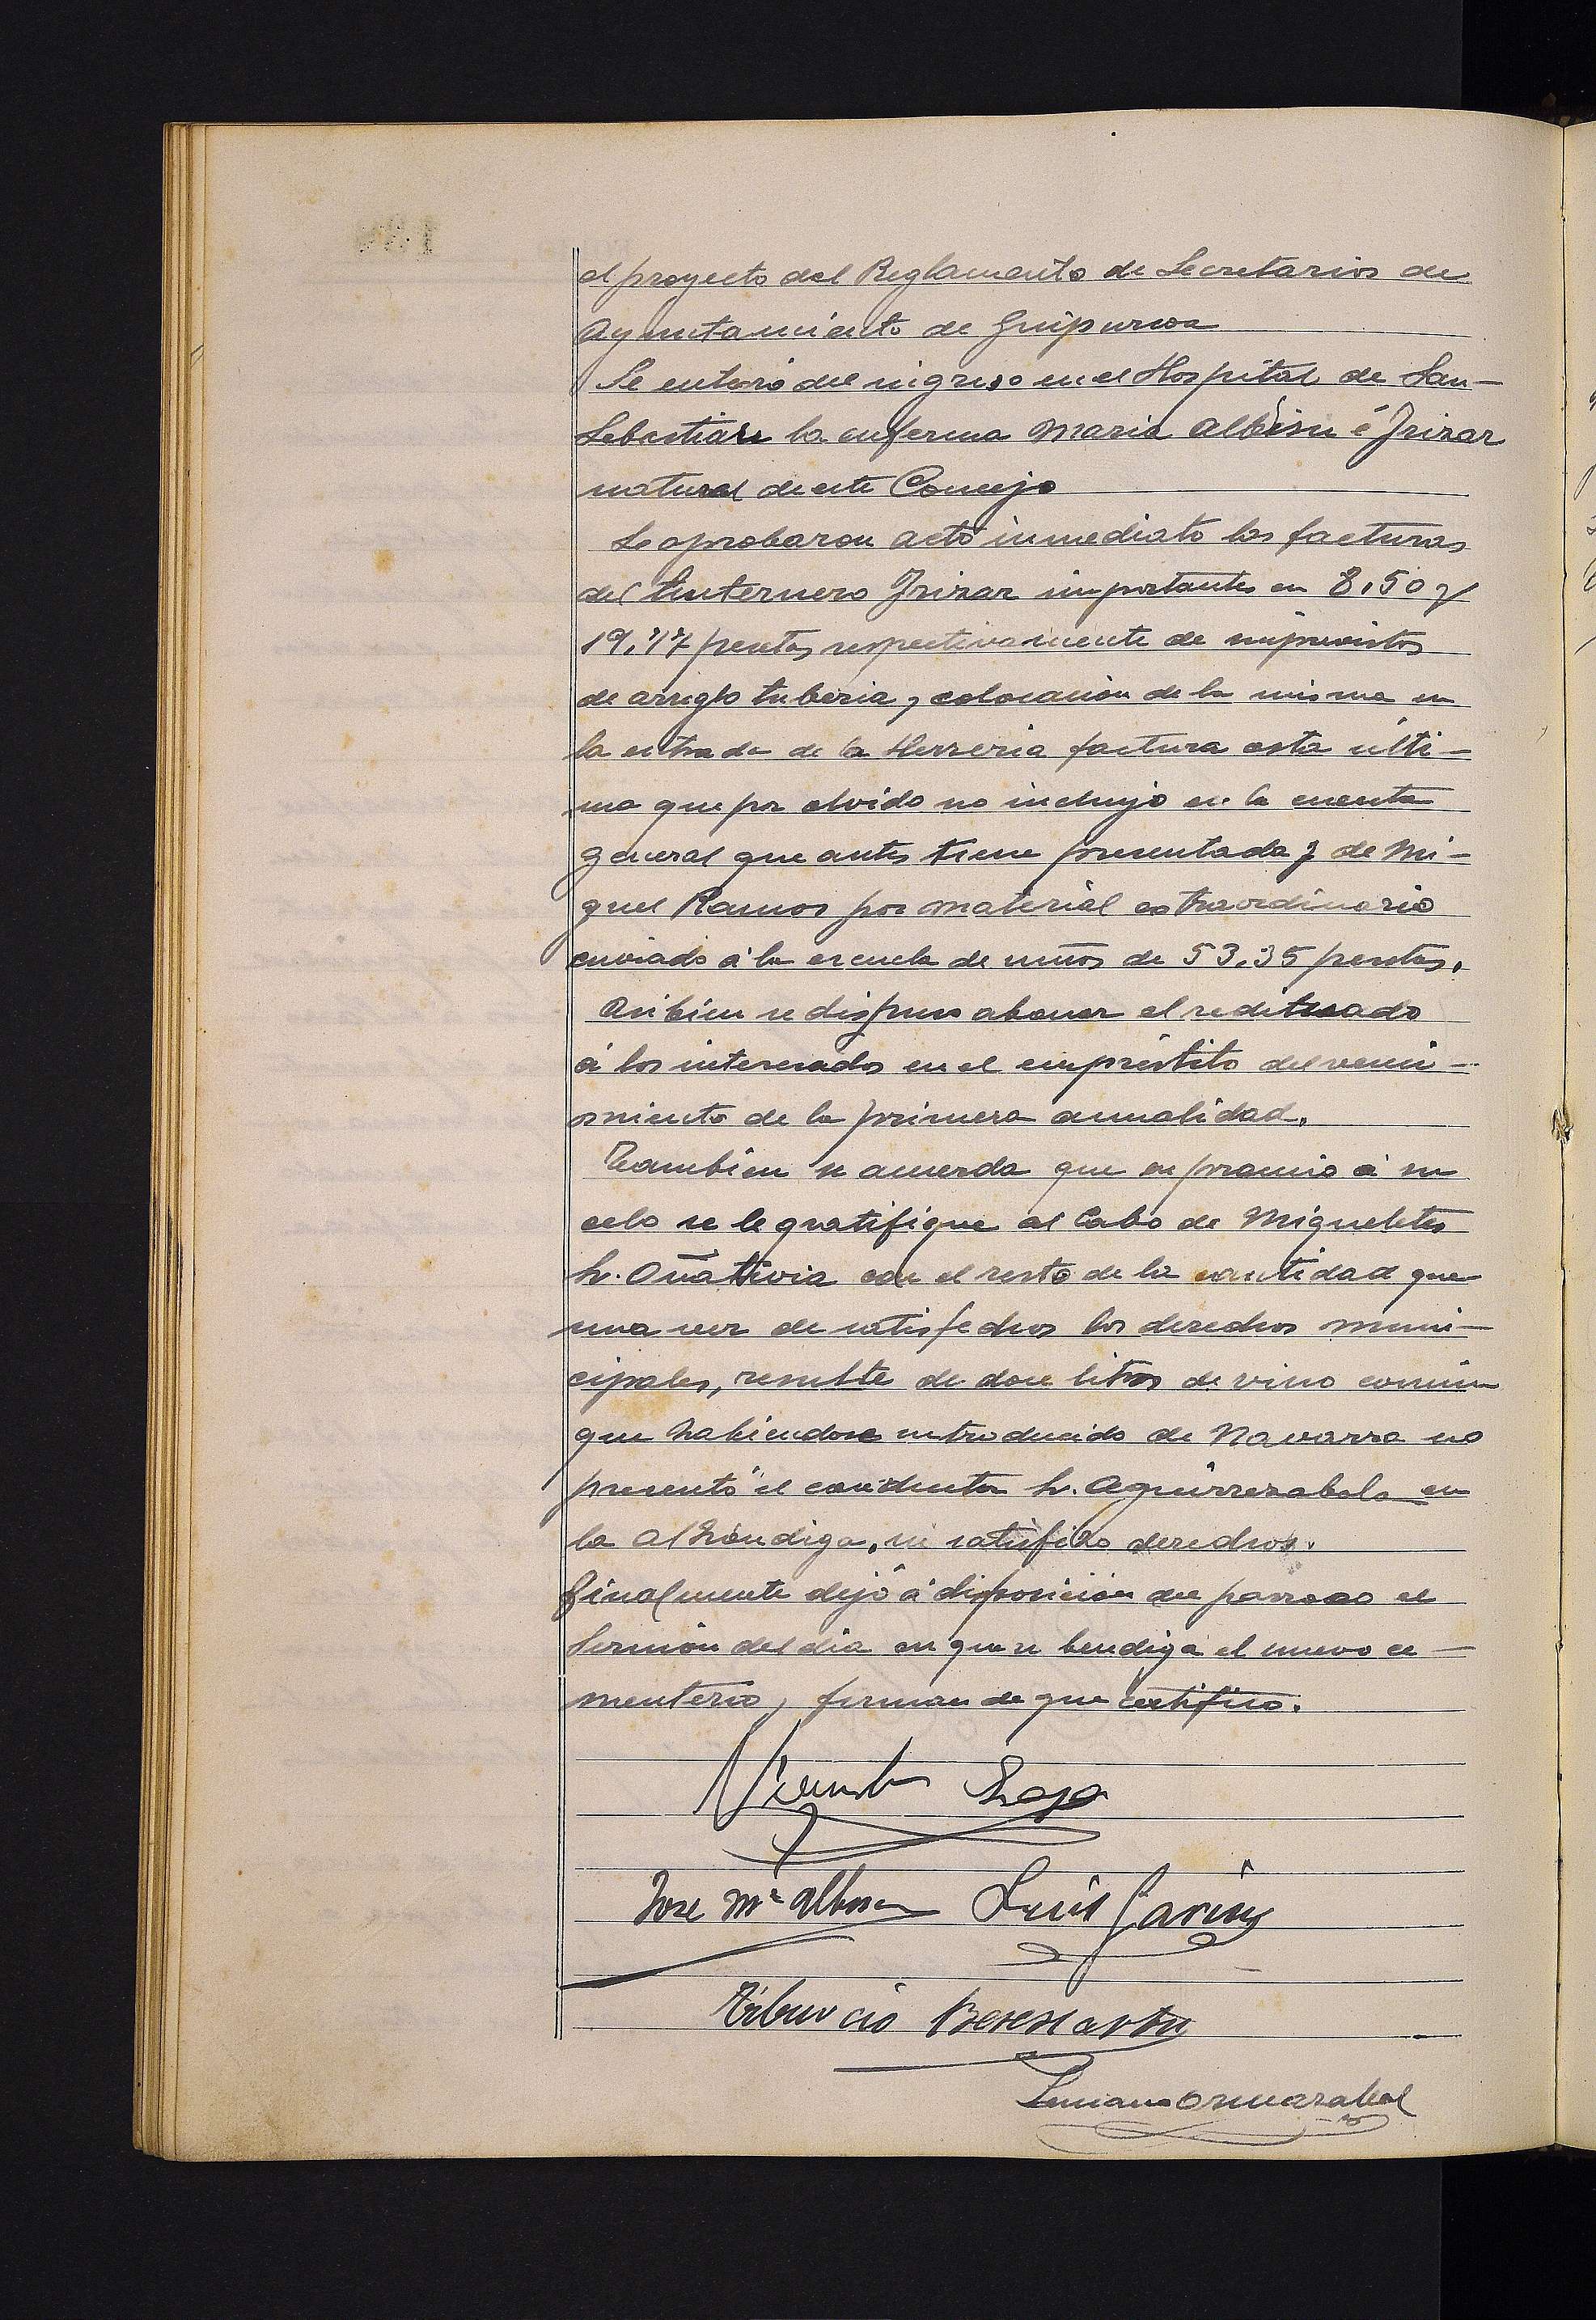 el proyecto del Reglamento de Secretarios de
Ayuntamiento de Guipuzcoa
Se enteró del ingreso en el Hospital de San-
Sebastian la enferma Maria Albisu é Irizar
natural de este Concejo
Se aprobaron acto inmediato las facturas
del linternero Irizar importantes en 8,50 y
19,77 pesetas respectivamente de imprevistos
de arreglo tuberia, colocación de la misma en
la entrada de la Herreria factura esta últi-
ma que por olvido no incluyó en la cuenta
general que antes tiene presentada y de Mi-
guel Ramos por material extraordinario
enviado á la escuela de niños de 53,35 pesetas.
Asibien se dispuso abonar el redituado
á los interesados en el empréstito del venci-
miento de la primera anualidad.
Tambien se acuerda que en premio á su
celo se le gratifique al Cabo de Migueletes
Sr. Oñativia con el resto de la cantidad que
una vez de satisfechos los derechos muni-
cipales, resulte de doce litros de vino común
que habiendose introducido de Navarra no
presentó el conductor Sr. Aguirrezabala en
la Alhóndiga, ni satisfizo derechos.
Finalmente dejó á disposición del parroco el
Sermón del dia en que se bendiga el nuevo ce-
menterio, firman de que certifico.
Vicente
José Mª Albisu Luis Garin
Tiburcio Berasiartu
Luciano Ormazabal